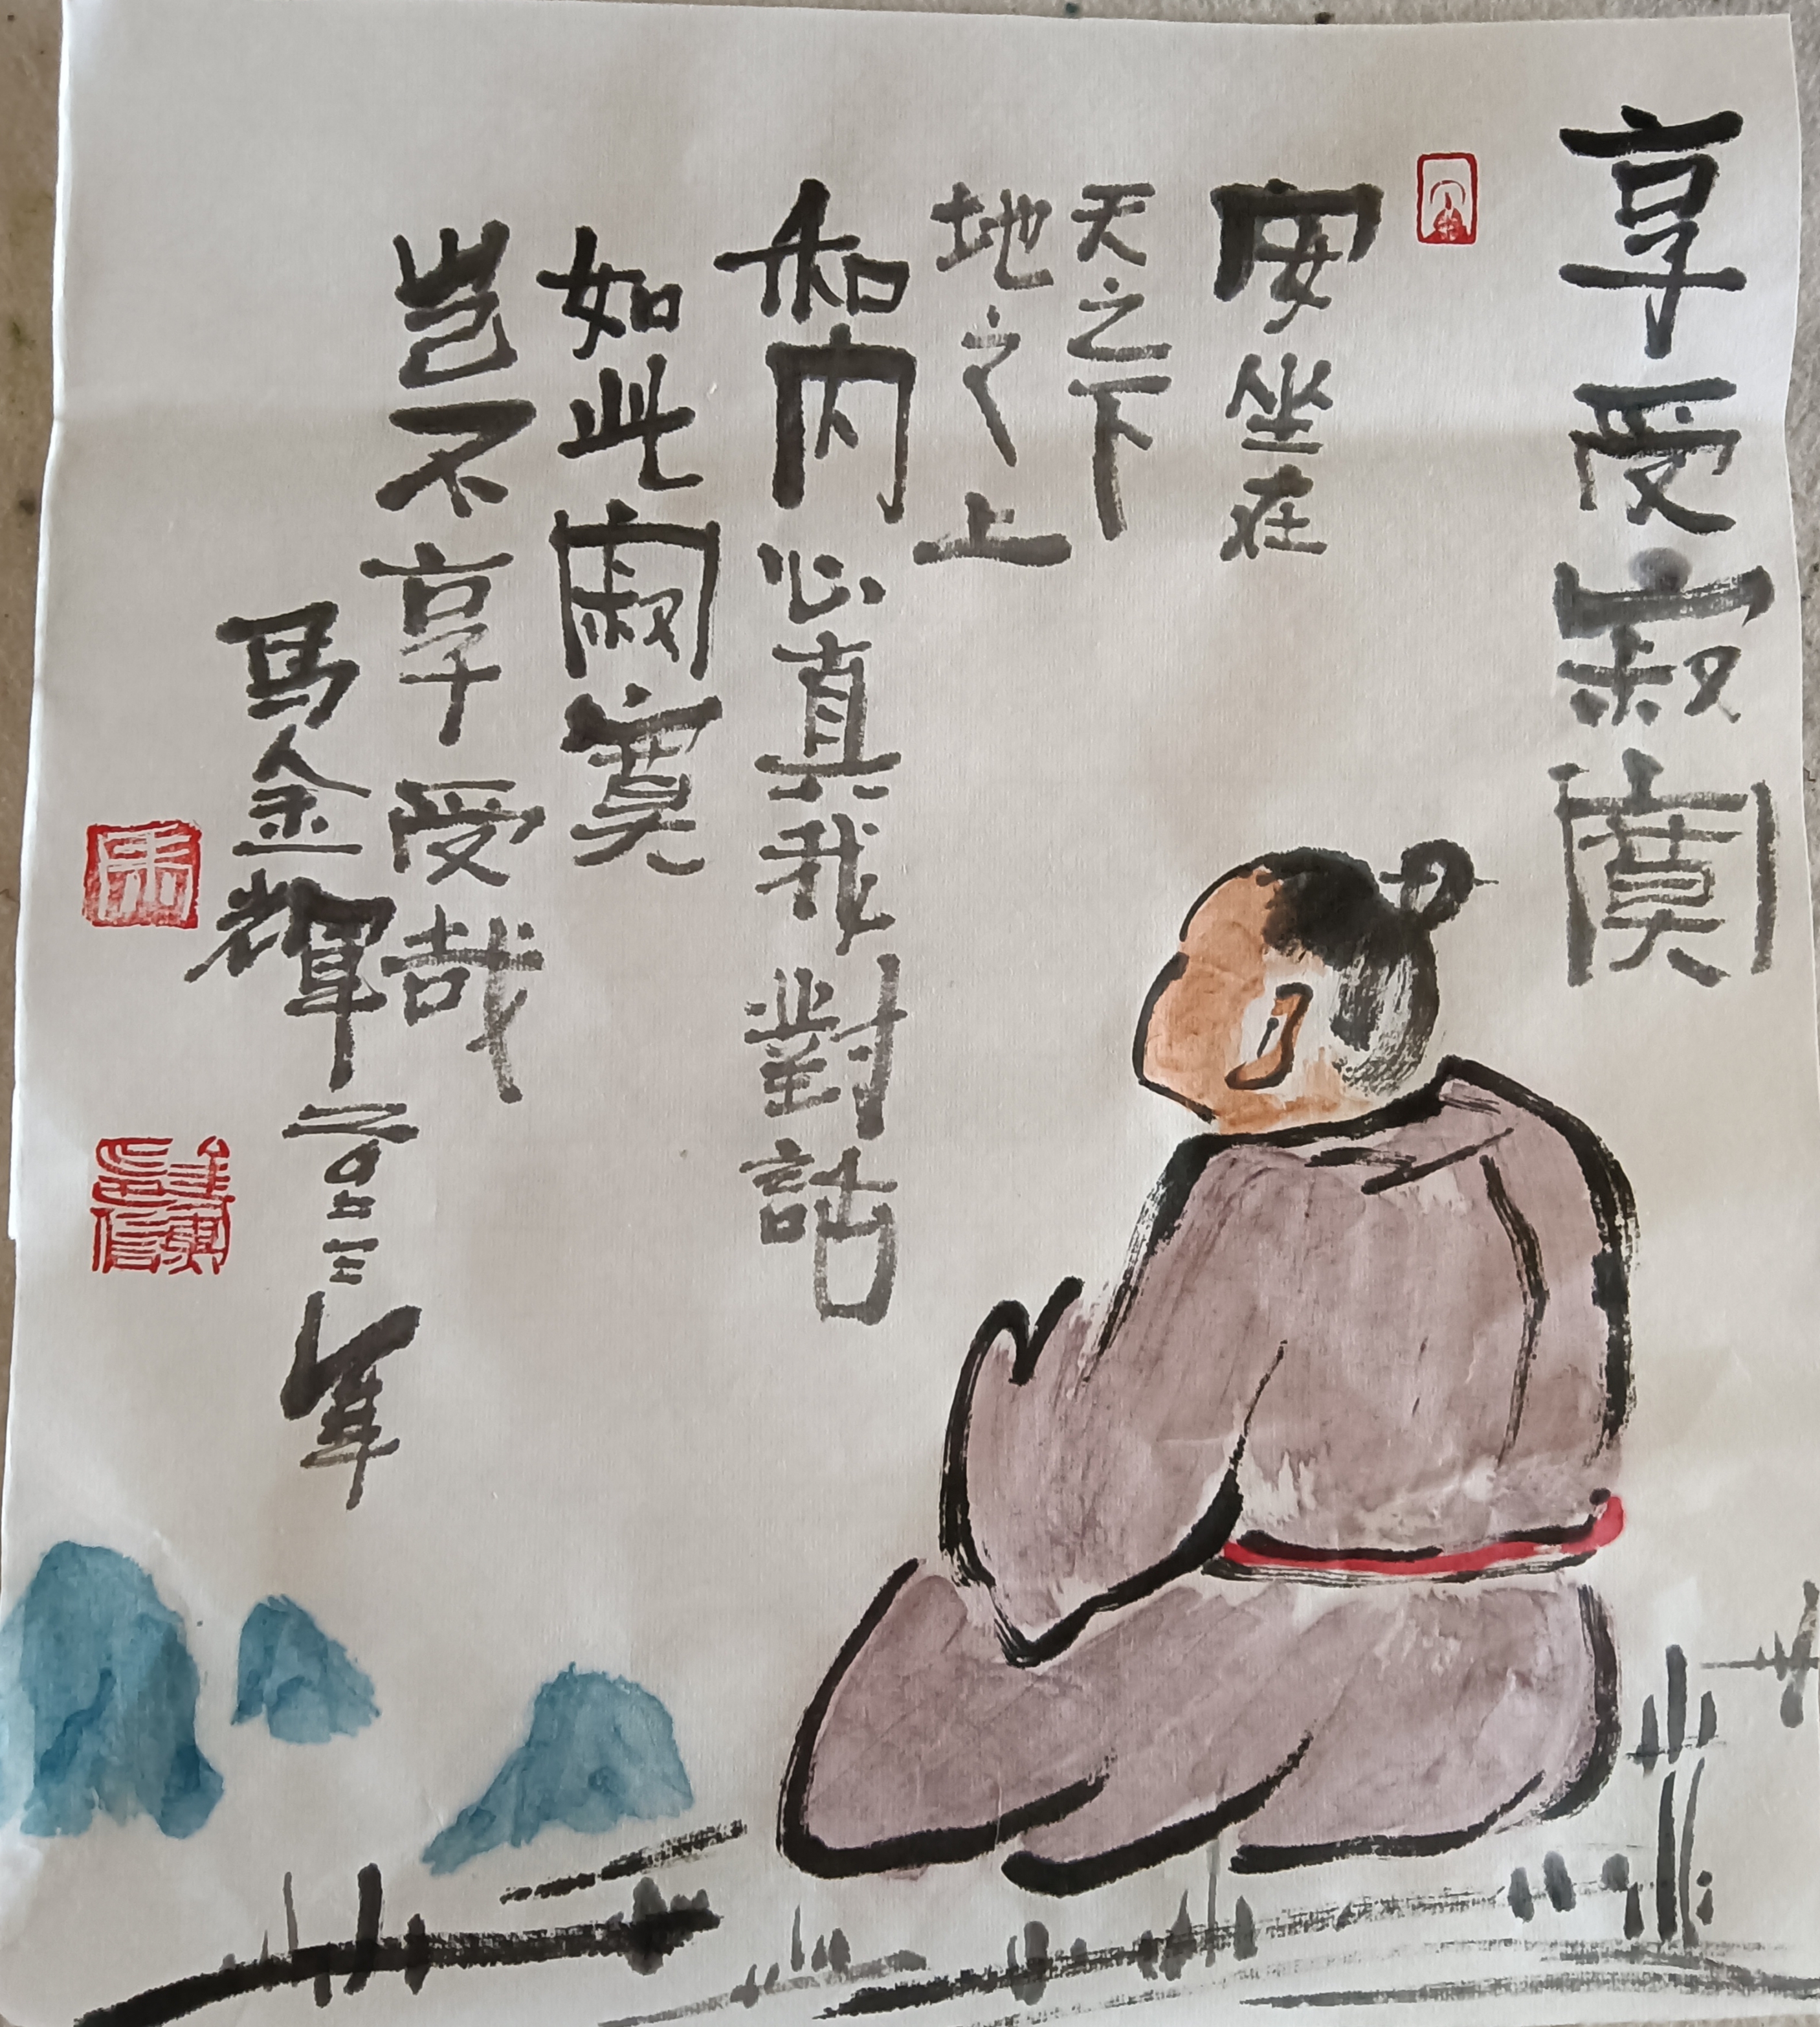 享受寂寞
安坐在
天之下
地之上
和内心真我對話
如此寂寞
岂不享受哉
馬金輝二〇二三年